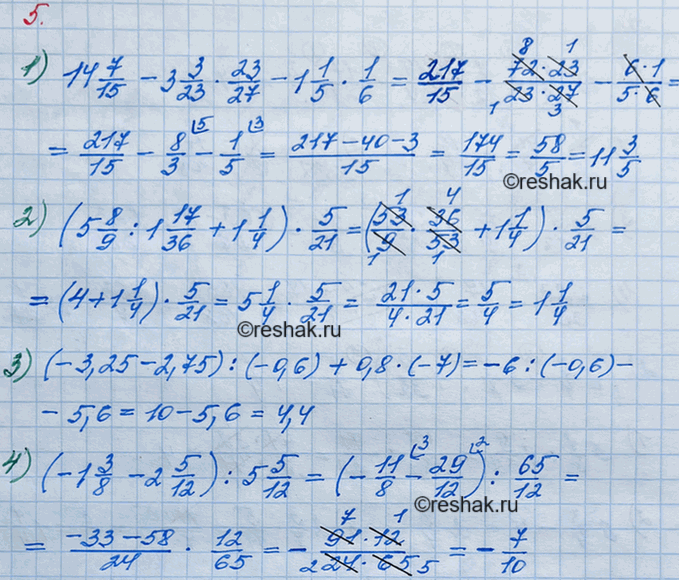 5.
1) 14 7/15 − 3 3/23 · 23/27 − 1 1/5 · 1/6 = 217/15 − 72·23/23·27 − 6·1/5·6 =
= 217/15 − 8/3 − 1/5 = 217−40−3/15 = 174/15 = 58/5 = 11 3/5
©reshak.ru
2) (5 8/9 : 1 17/36 + 1 1/4) · 5/21 = (53/9 · 36/53 + 1 1/4) · 5/21 =
= (4 + 1 1/4) · 5/21 = 5 1/4 · 5/21 = 21·5/4·21 = 5/4 = 1 1/4
©reshak.ru
3) (−3,25 − 2,75) : (−0,6) + 0,8 · (−7) = −6 : (−0,6) −
− 5,6 = 10 − 5,6 = 4,4
4) (−1 3/8 − 2 5/12) : 5 5/12 = (−11/8 − 29/12) : 65/12 =
©reshak.ru
= −33−58/24 · 12/65 = − 91·12/24·65 = − 7/10